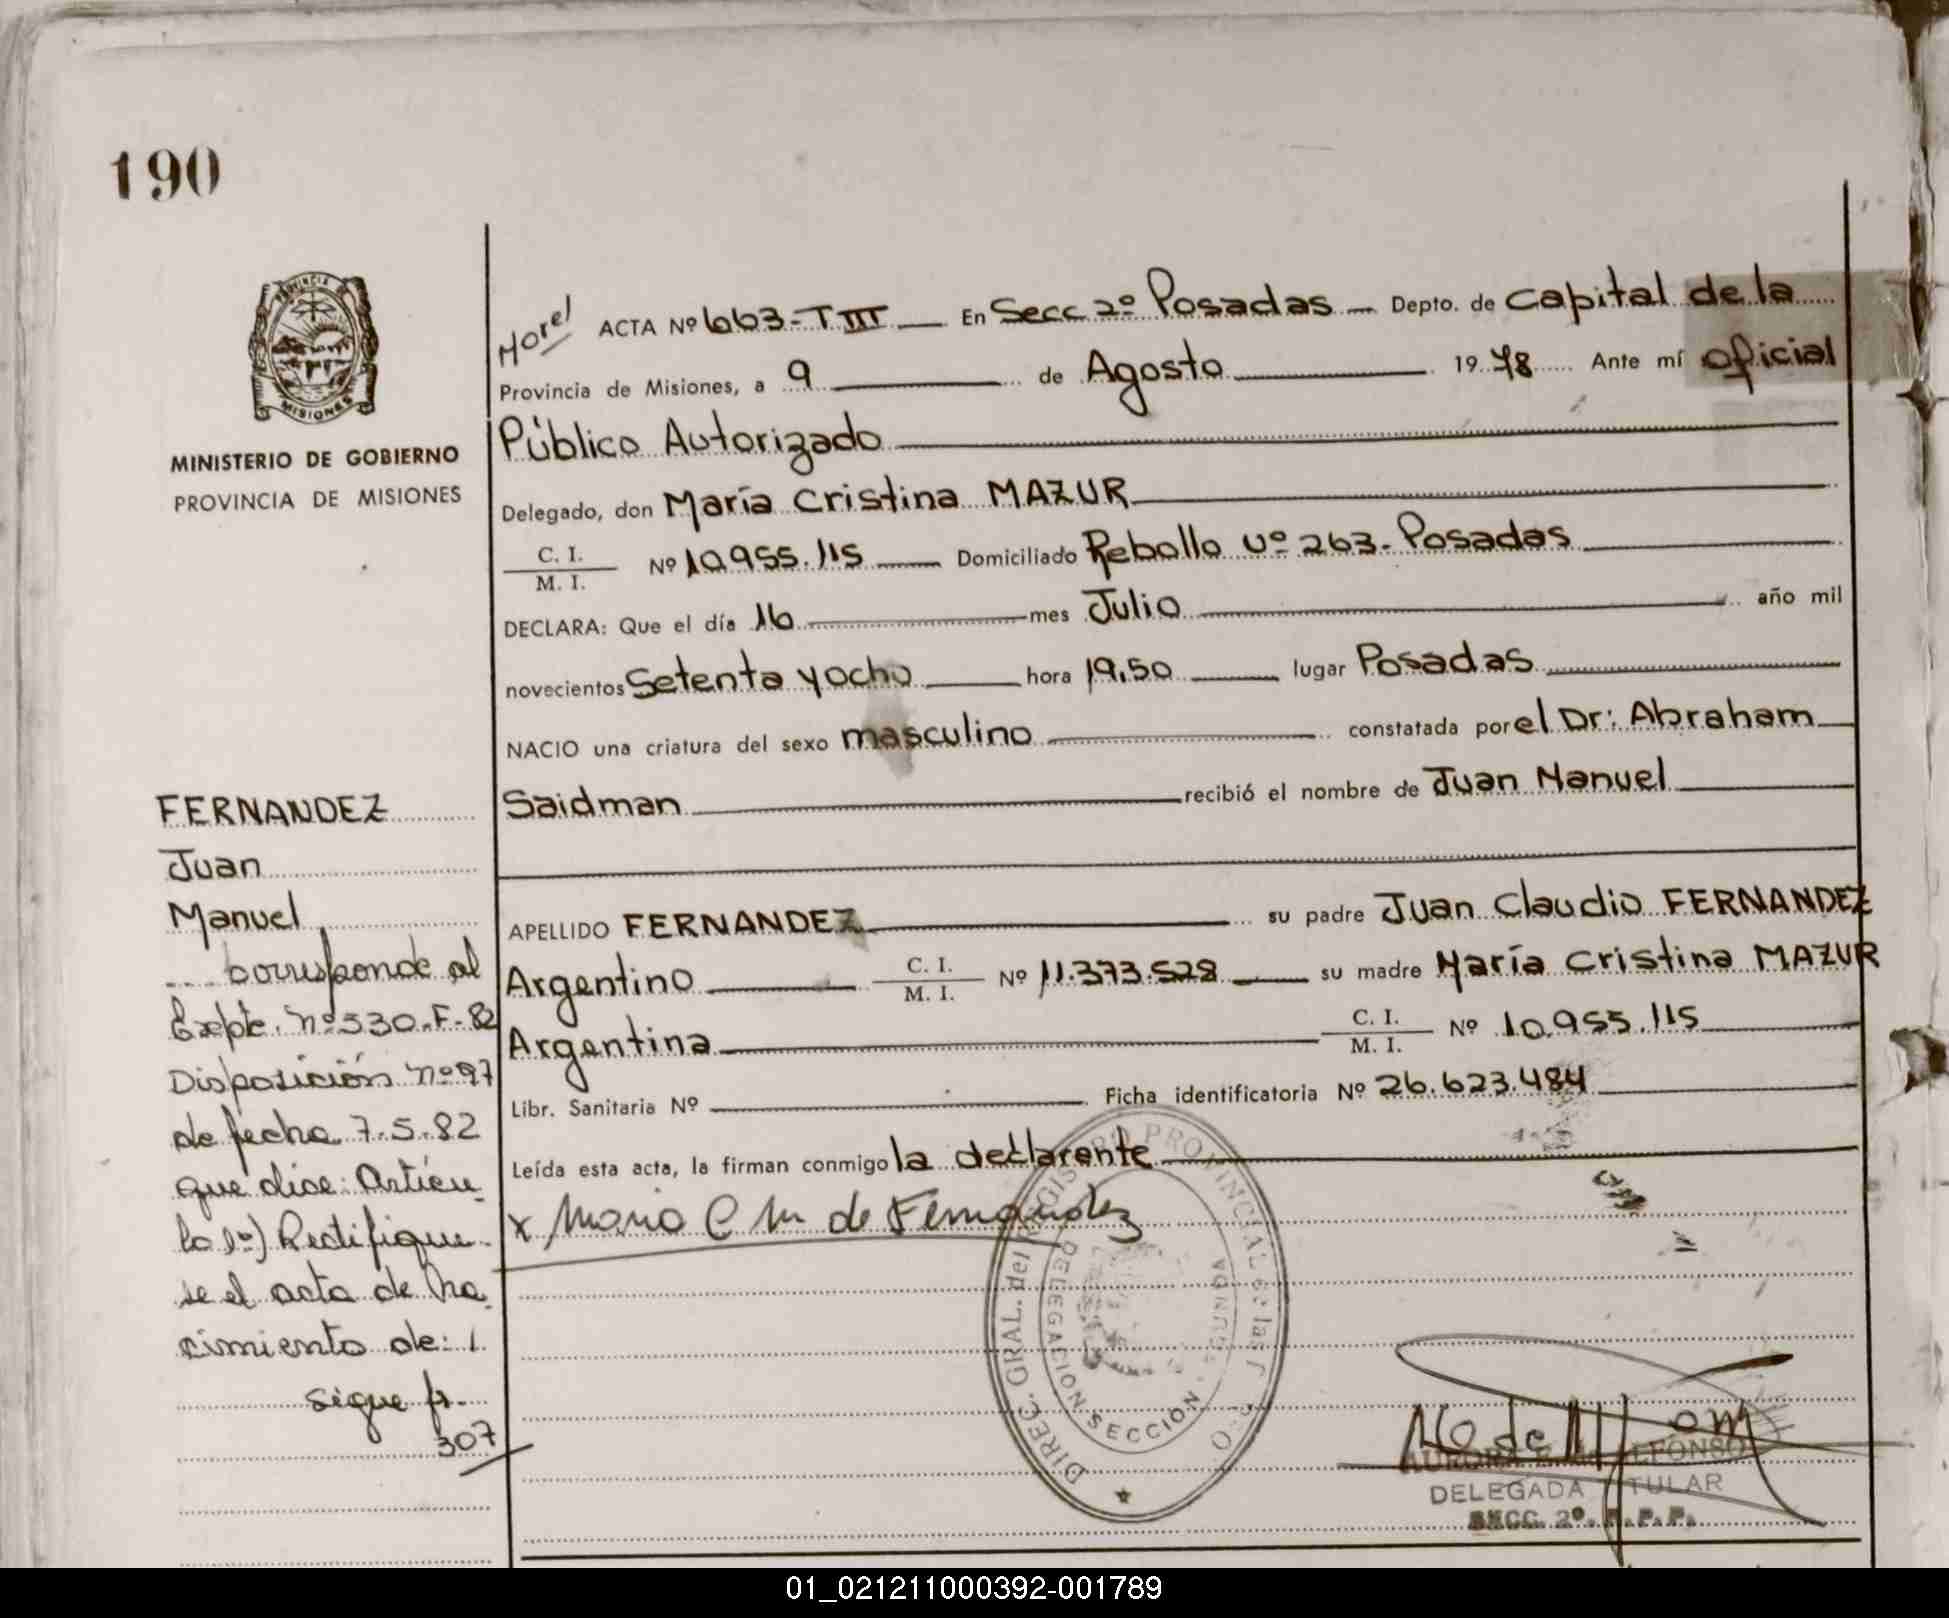 190
PROVINCIA DE
MISIONES
MINISTERIO DE GOBIERNO
PROVINCIA DE MISIONES
FERNANDEZ
Juan
Manuel
corresponde al
Expte. nº 530-F-82
Disposición nº 97
de fecha 7-5-82
que dice: Artícu-
lo 1º) Rectifíque-
se el acta de Na-
cimiento de:
Sigue fº
307
ACTA Nº 663-T III En Secc 2º Posadas Depto. de Capital de la
Provincia de Misiones, a 9 de Agosto 1978 Ante mí Oficial
Público Autorizado
Delegado, don María Cristina MAZUR
C. I.
M. I. Nº 10.955.115 Domiciliado Rebollo Nº 263- Posadas
DECLARA: Que el día 16 mes Julio año mil
novecientos Setenta y ocho hora 19,50 lugar Posadas
NACIO una criatura del sexo masculino constatada por el Dr: Abraham
Saidman recibió el nombre de Juan Manuel
APELLIDO FERNANDEZ su padre Juan Claudio FERNANDEZ
Argentino C. I.
M. I. Nº 11.373.528 su madre María Cristina MAZUR
Argentina C. I.
M. I. Nº 10.955.115
Libr. Sanitaria Nº Ficha identificatoria Nº 26.623.484
Leída esta acta, la firman conmigo la declarente
x Maria C M de Fernandez
DIREC. GRAL. del REGISTRO PROVINCIAL de las
DELEGACION SECCION
AURORA ALFONSO
DELEGADA TITULAR
SECC. 2º. R.P.P.
01_021211000392-001789